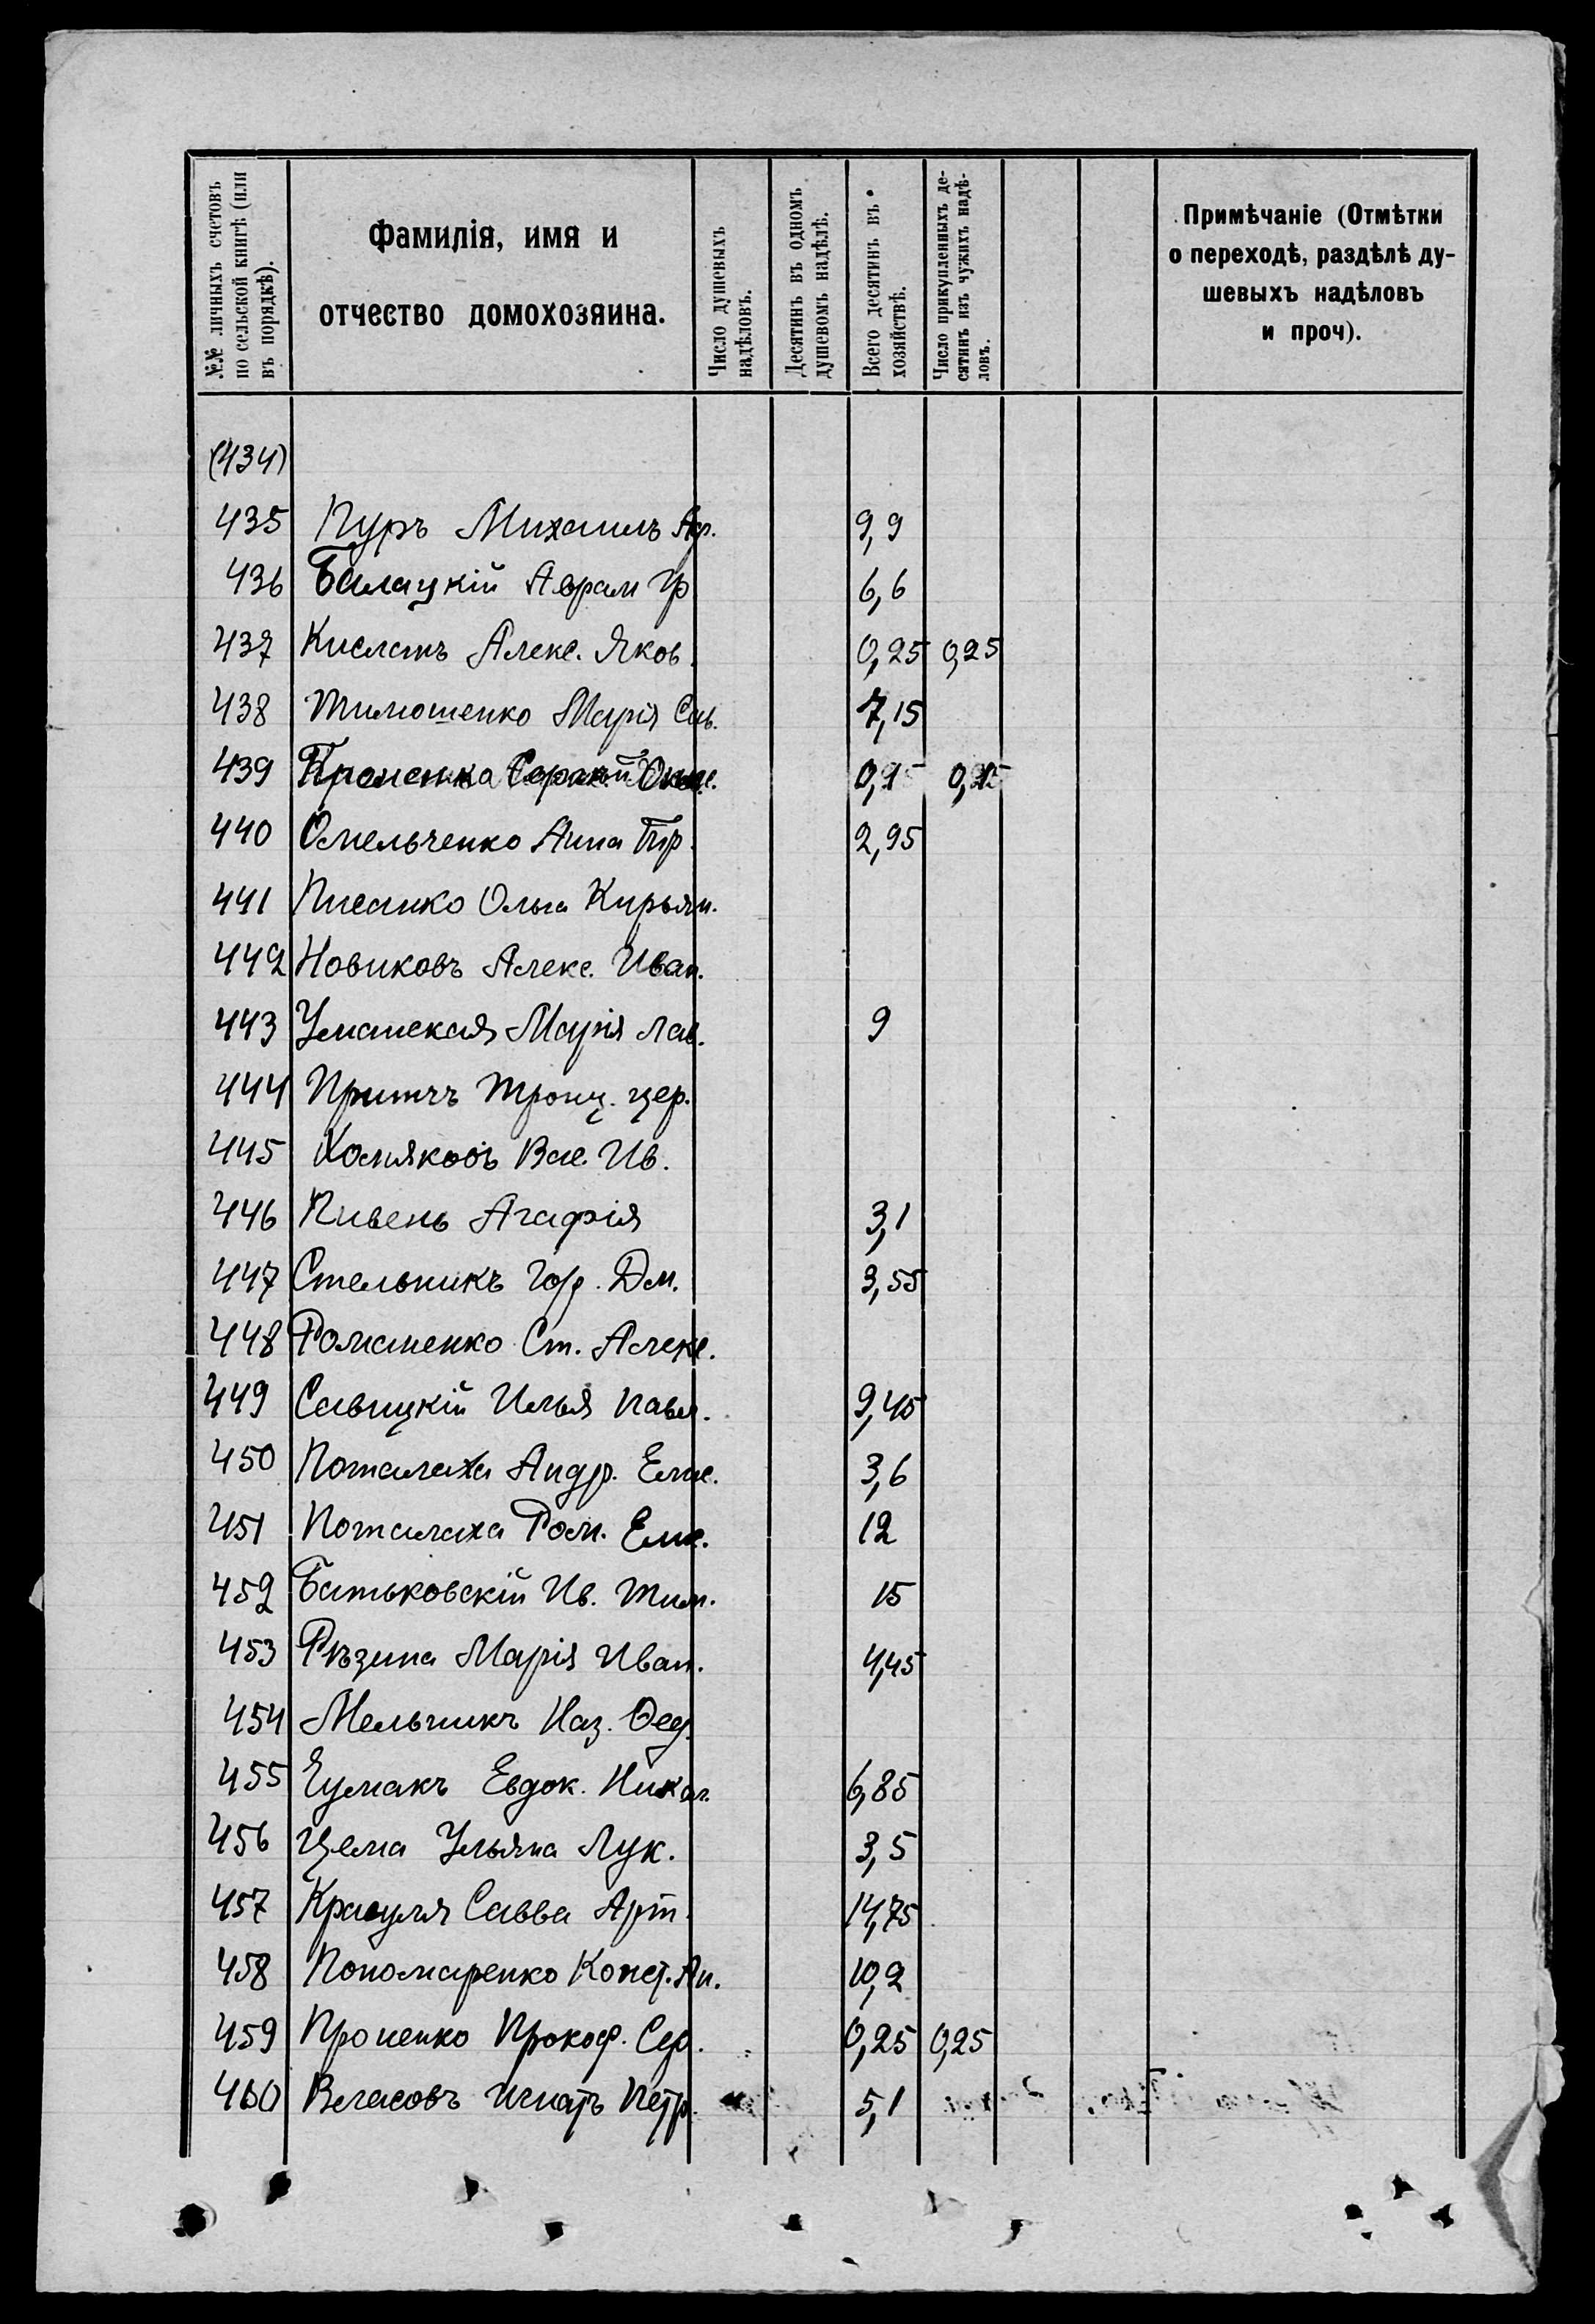 №№ личныхъ счетовъ
по сельской книгѣ (или
въ порядкѣ).
Фамилія, имя и
отчество домохозяина.
Число душевыхъ
надѣловъ.
Десятинъ въ одномъ
душевомъ надѣлѣ.
Всего десятинъ въ
хозяйствѣ.
Число прикупленныхъ де-
сятинъ изъ чужихъ надѣ-
ловъ.
Примѣчаніе (Отмѣтки
о переходѣ, раздѣлѣ ду-
шевыхъ надѣловъ
и проч).
(434)
435 Пуръ Михаилъ 9,9
436 Билацкій Аврам Гр 6,6
437 Алекс. Яков. 0,25 0,25
438 Тимошенко Марія Сав. 7,15
439
440 Омельченко Анна 2,95
441 Писанко Ольга Кирьян.
442 Новиковъ Алекс. Иван.
443 Уманская Марія Лав. 9
444 Притчъ Троиц. цер.
445 Хомяковъ Вас. Ив.
446 Пивень Агафія 3,1
447 Стельникъ Гор. Дм. 3,55
448 Романенко Ст. Алекс.
449 Савицкій Илья Павл. 9,45
450 Поталаха Андр. Елис. 3,6
451 Поталаха Ром. Елис. 12
452 Батьковскій Ив. Тим. 15
453 Рѣзина Марія Иван. 4,45
454 Мельникъ Наз. Ѳед.
455 Чумакъ Евдок. Никол. 6,85
456 Цема Ульяна Лук. 3,5
457 Красуля Савва Арт. 14,75
458 Пономаренко Конст. Ан. 10,2
459 Проценко Прокоф. Сер. 0,25 0,25
460 Власовъ Игнатъ Петр. 5,1